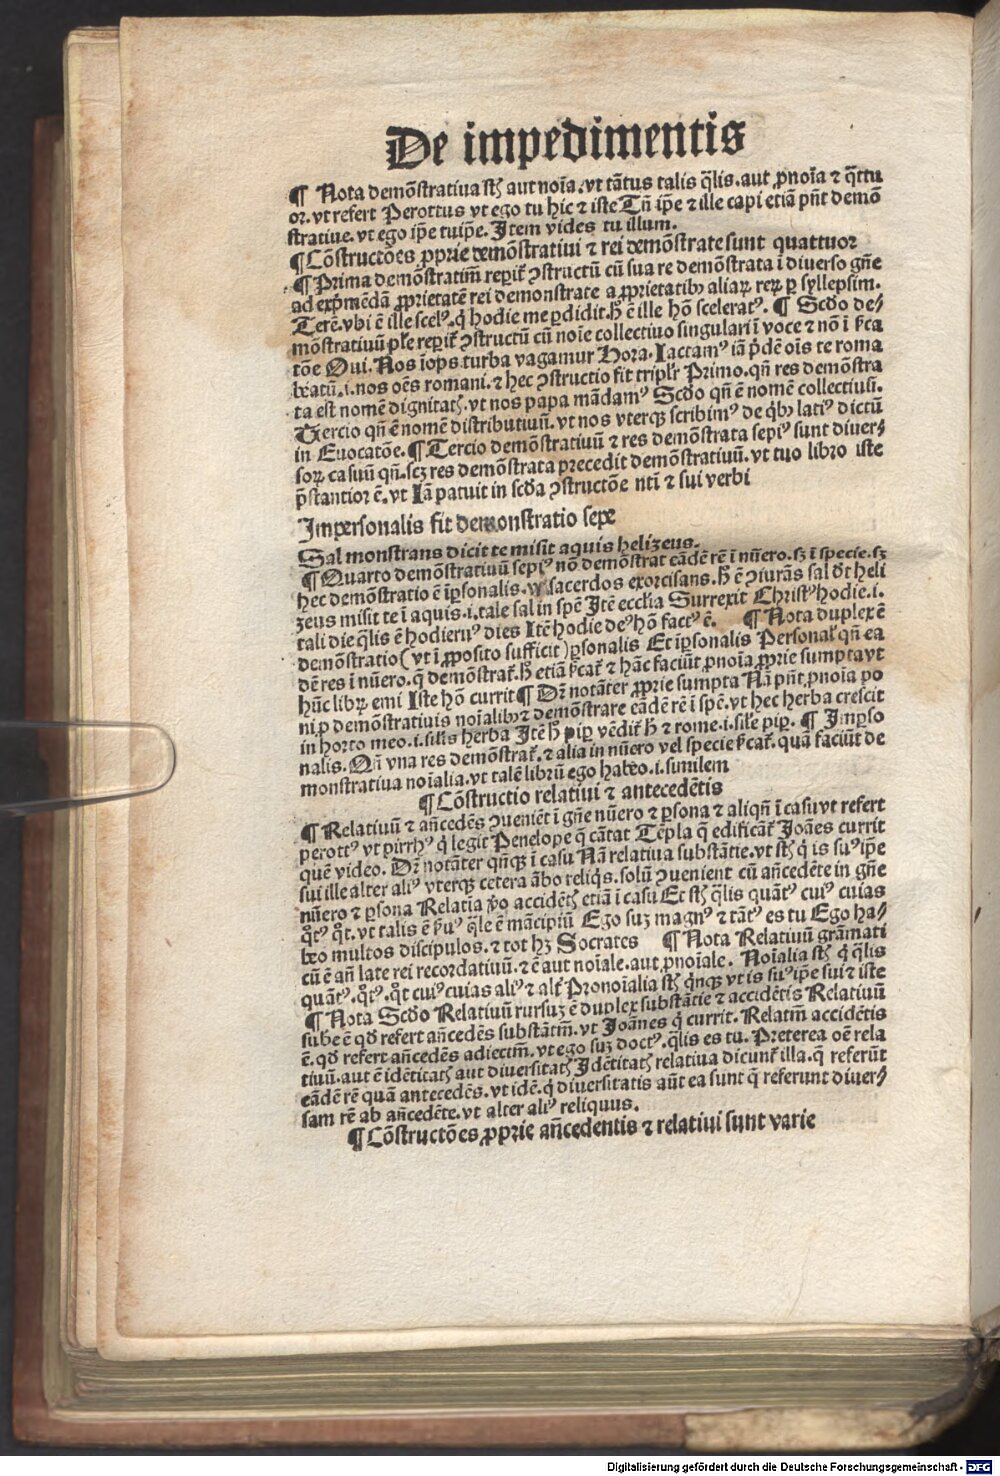 De impedimentis
¶ Nota demõstratiua sũt aut noĩa .vt tãtus talis q̃lis.aut ꝓnoĩa ⁊ q̃ttu
or. vt refert Perottus vt ego tu hic ⁊ iste Tñ ip̃e ⁊ ille capi etiã pñt demõ
stratiue. vt ego ip̃e tuip̃e. Item vides tu illum.
¶ Cõstructões ꝓprie demõstratiui ⁊ rei demõstrate sunt quattuor
¶ Prima demõstratiuũ reperit̃ ꝯstructũ cũ sua re demõstrata ĩ diuerso gñe
ad exp̃mẽdã ꝓprietatẽ rei demonstrate a ꝓprietatibꝰ aliaꝝ reꝝ ꝑ syllepsim.
Terẽ. vbi ẽ ille scelꝰ. q̇ hodie me ꝑdidit. h̃ ẽ ille hõ sceleratꝰ. ¶ Scd̃o de⸗
mõstratiuũ ꝑł'e reperit̃ ꝯstructũ cũ noĩe collectiuo singulari ĩ voce ⁊ nõ ĩ
tõe Oui. Nos ĩops turba vagamur Hora. Iactamꝰ iã p̃dẽ oĩs te roma
beatũ .i. nos oẽs romani. ⁊ hec ꝯstructio fit triplr̃ Primo. qñ res demõstra
ta est nomẽ dignitatꝭ. vt nos papa mãdamꝰ Scd̃o qñ ẽ nomẽ collectiuũ.
Tercio qñ ẽ nomẽ distributiuũ. vt nos vterqꝫ scribimꝰ de q̇bꝰ latiꝰ dictũ
in Euocatõe. ¶ Tercio demõstratiuũ ⁊ res demõstrata sepiꝰ sunt diuer⸗
soꝝ casuũ qñ. scꝫ res demõstrata precedit demõstratiuũ. vt tuo libro iste
p̃stantior ẽ. vt Iã patuit in scd̃a ꝯstructõe ntĩ ⁊ sui verbi
Impersonalis fit demonstratio sepe
Sal monstrans dicit te misit aquis helizeus.
¶ Quarto demõstratiuũ sepiꝰ nõ demõstrat eãdẽ rẽ ĩ nũero. sꝫ ĩ specie. sꝫ
hec demõstratio ẽ ĩꝑsonalis. sacerdos exorcisans. h̃ ẽ ꝯiurãs sal dt̃ heli
zeus misit te ĩ aquis .i. tale sal in spẽ Itẽ eccl̃ia Surrexit Christꝰ hodie .i.
tali die q̃lis ẽ hodiernꝰ dies Itẽ hodie deꝰ hõ factꝰ ẽ. ¶ Nota duplex ẽ
demõstratio ( vt ĩ ꝓposito sufficit ) ꝑsonalis Et ĩꝑsonalis Personal' qñ ea
dẽ res ĩ nũero. q̃ demõstrat̃. h̃ etiã ⁊ hãc faciũt ꝓnoĩa ꝓprie sumpta vt
hũc libꝝ emi Iste hõ currit ¶ Dr̃ notãter ꝓprie sumpta Nã pñt ꝓnoĩa po
ni ꝑ demõstratiuis noĩalibꝰ ⁊ demõstrare eãdẽ rẽ ĩ spẽ. vt hec herba crescit
in horto meo .i. silis herba Itẽ h̃ piꝑ vẽdit̃ h̃ ⁊ rome .i. sile piꝑ. ¶ Imꝑso
nalis. Qñ vna res demõstrat̃. ⁊ alia in nũero vel specie quã faciũt de
monstratiua noĩalia. vt talẽ librũ ego habeo .i. similem
¶ Cõstructio relatiui ⁊ antecedẽtis
¶ Relatiuũ ⁊ añcedẽs ꝯueniẽt ĩ gñe nũero ⁊ ꝑsona ⁊ aliqñ ĩ casu vt refert
perottꝰ vt pirrhꝰ q̇ legit Penelope q̃ cãtat Tẽpla q̃ edificãt̃ Ioãnes currit
quẽ video. Dr̃ notãter qñqꝫ ĩ casu Nã relatiua substãtie. vt sũt q̇ is suꝰ ip̃e
sui ille alter aliꝰ vterqꝫ cetera ãbo reliq̇s. solũ ꝯuenient cũ añcedẽte in gñe
nũero ⁊ ꝑsona Relatia ꝟo accidẽtꝭ etiã ĩ casu Et sũt q̃lis quãtꝰ cuiꝰ cuias
q̊tꝰ q̊t. vt talis ẽ q̃le ẽ mãcipiũ Ego suꝫ magnꝰ ⁊ tãtꝰ es tu Ego ha⸗
beo multos discipulos. ⁊ tot hꝫ Socrates ¶ Nota Relatiuũ grãmati
cũ ẽ añ late rei recordatiuũ. ⁊ ẽ aut noĩale. aut ꝓnoĩale. Noĩalia sũt q̇ q̃lis
quãtꝰ. q̊tꝰ. q̊t cuiꝰ cuias aliꝰ ⁊ alt̃ Pronoĩalia sũt q̇nqꝫ vt is suꝰ ip̃e sui ⁊ iste
¶ Nota Scd̃o Relatiuũ rursuꝫ ẽ duplex substãtie ⁊ accidẽtis Relatiuũ
sube ẽ qd̃ refert añcedẽs substãtiuũ. vt Joãnes q̇ currit. Relatiũ accidẽtis
ẽ. qd̃ refert añcedẽs adiectiuũ. vt ego suꝫ doctꝰ. q̃lis es tu. Preterea oẽ rela
tiuũ. aut ẽ idẽtitatꝭ aut diuersitatꝭ Idẽtitatꝭ relatiua dicunt̃ illa. q̃ referũt
eãdẽ rẽ quã antecedẽs. vt idẽ. q̇ diuersitatis aũt ea sunt q̃ referunt diuer⸗
sam rẽ ab añcedẽte. vt alter aliꝰ reliquus.
¶ Cõstructões ꝓprie añcedentis ⁊ relatiui sunt varie
Digitalisierung gefördert durch die Deutsche Forschungsgemeinschaft - DFG